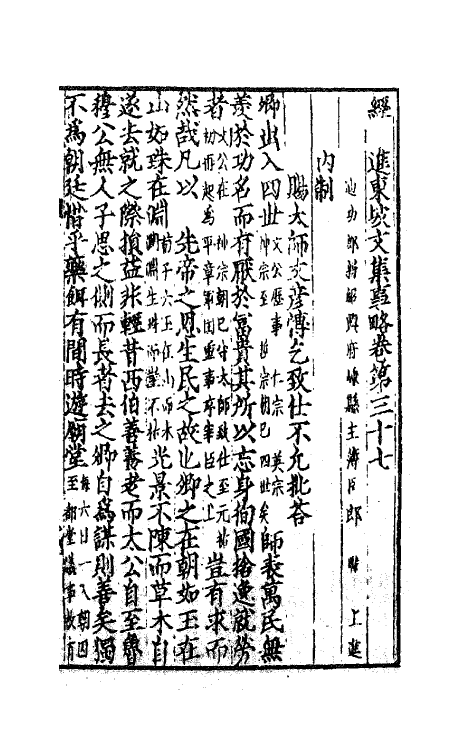 經進東坡文集事略卷第三十七
迪功郎紹興府嵊縣主簿臣郎曄上進
內制
賜太師文彥博乞致仕不允批荅
卿出入四世文公歷事仁宗英宗神宗至哲宗朝已四世矣師表萬民無
羨於功名而有厭於富貴其所以忘身徇國捨逸就勞
者文公在神宗朝已守太師致仕至元祐初而起為平章軍國重事序宰臣之上豈有求而
然哉凡以先帝之恩生民之故也卿之在朝如玉在
山如珠在淵荀子玉在山而木潤淵生珠而崖不枯光景不陳而草木自
遂去就之際損益非輕昔西伯善養老而太公自至魯
穆公無人子思之側而長者去之卿自為謀則善矣獨
不為朝廷惜乎藥餌有間時遊廟堂每六日一入朝因至都堂議事故有